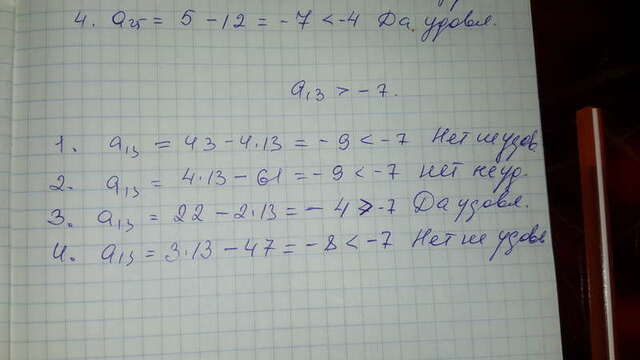 4. a₂₅ = 5 - 12 = - 7 < -4 Да удовл.
a₁₃ > - 7.
1. a₁₃ = 43 - 4·13 = - 9 < -7 Нет не удов
2. a₁₃ = 4·13 - 61 = - 9 < -7 нет неуд.
3. a₁₃ = 22 - 2·13 = - 4 > -7 Да удовл.
4. a₁₃ = 3·13 - 47 = - 8 < -7 Нет не удовл